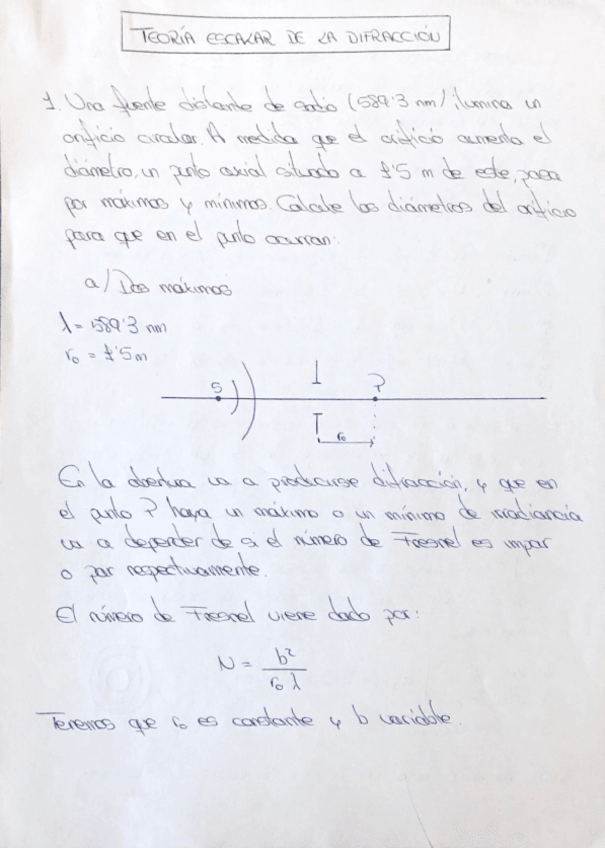 TEORÍA ESCALAR DE LA DIFRACCIÓN
1. Una fuente distante de sodio (589'3 nm) ilumina un
orificio circular. A medida que el orificio aumenta el
diámetro, un punto axial situado a 1'5 m de este, pasa
por máximos y mínimos. Calcule los diámetros del orificio
para que en el punto ocurran:
a/ Dos máximos
λ = 589'3 nm
r₀ = 1'5 m
S
P
r₀
En la abertura va a producirse difracción, y que en
el punto P haya un máximo o un mínimo de irradiancia
va a depender de si el número de Fresnel es impar
o par respectivamente.
El número de Fresnel viene dado por:
N = b² / r₀ λ
Tenemos que r₀ es constante y b variable.